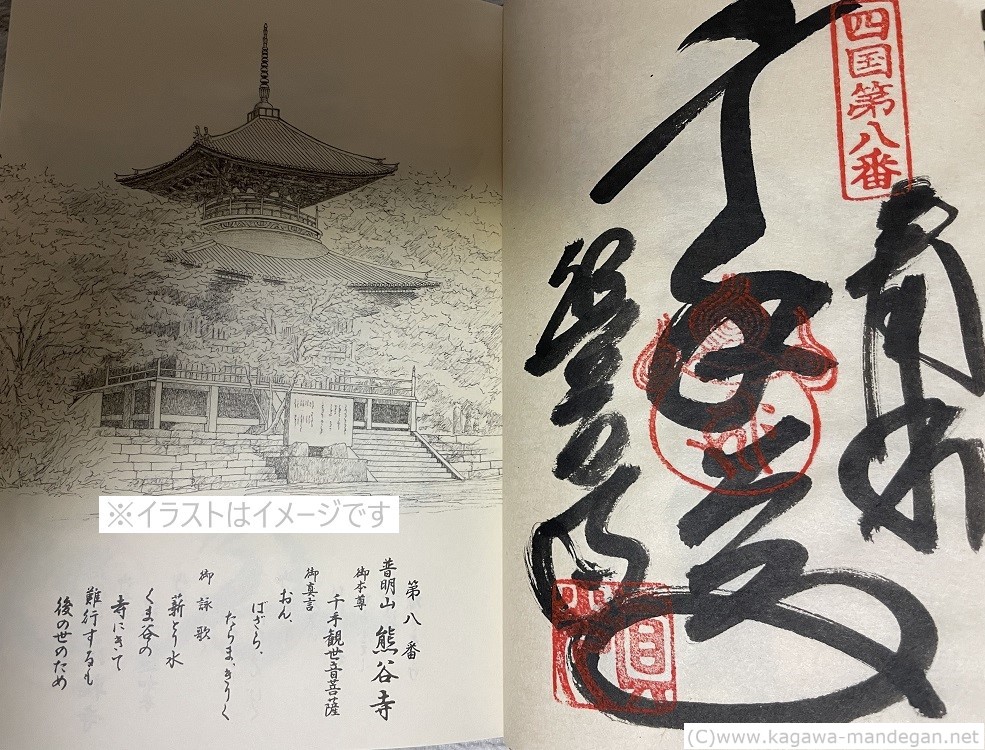 ※イラストはイメージです
第八番
普明山 熊谷寺
御本尊
千手観世音菩薩
御真言
おん.
ばざら.
たらま.きりく
御詠歌
薪とり水
くま谷の
寺にきて
難行するも
後の世のため
四国第八番
奉納
(C)www.kagawa-mandegan.net